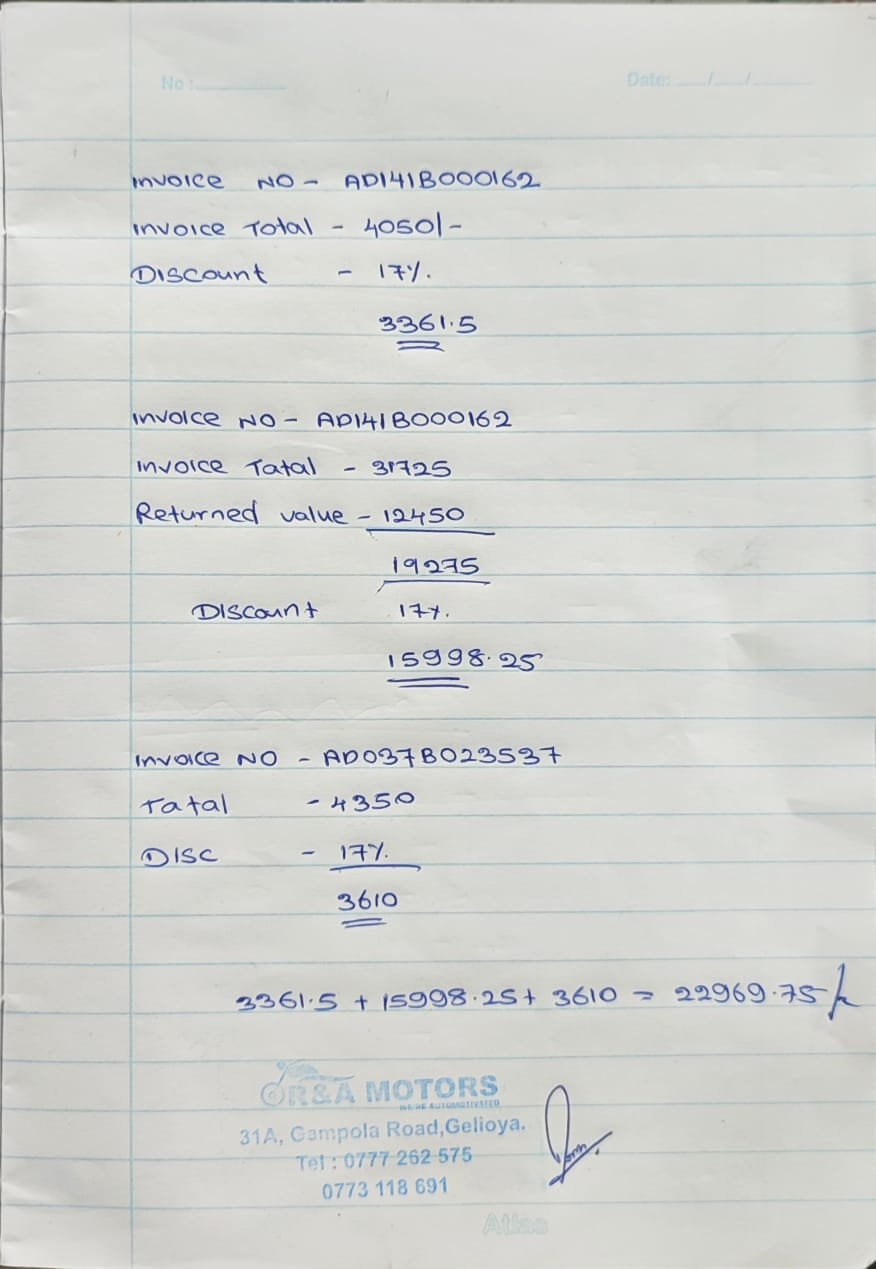 No :
Date: / /
Invoice NO - AD141B000162
Invoice Total - 4050/-
Discount - 17%.
3361.5
Invoice NO - AD141B000162
Invoice Tatal - 31725
Returned value - 12450
19275
Discount 17%.
15998.25
Invoice NO - AD037B023537
Tatal - 4350
Disc - 17%.
3610
3361.5 + 15998.25 + 3610 = 22969.75
R&A MOTORS
WE'RE AUTOMOTIVATED
31A, Gampola Road,Gelioya.
Tel : 0777 262 575
0773 118 691
Atlas